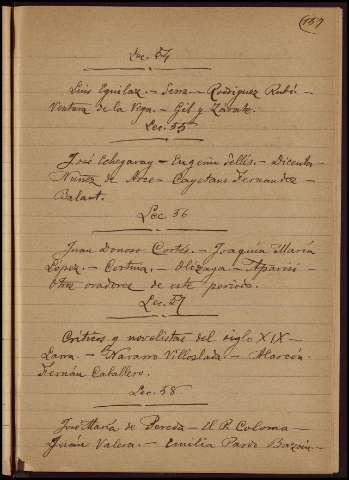 157
Lec. 54
Luis Eguilaz. - Serra - Rodriguez Rubí -
Ventura de la Vega. - Gil y Zárate.
Lec. 55
José Echegaray - Eugenio Sellés. - Dicenta -
Nuñez de Arce - Cayetano Fernandez -
Balart.
Lec 56
Juan Donoso Cortés. - Joaquín María
López. - Cortina. - Olózaga - Aparisi -
Otros oradores de este periodo.
Lec. 57
Críticos y novelistas del siglo XIX -
Larra. - Navarro Villoslada. - Alarcón.
Fernán Caballero.
Lec. 58
José María de Pereda - El P. Coloma -
Juan Valera. - Emilia Pardo Bazán. -